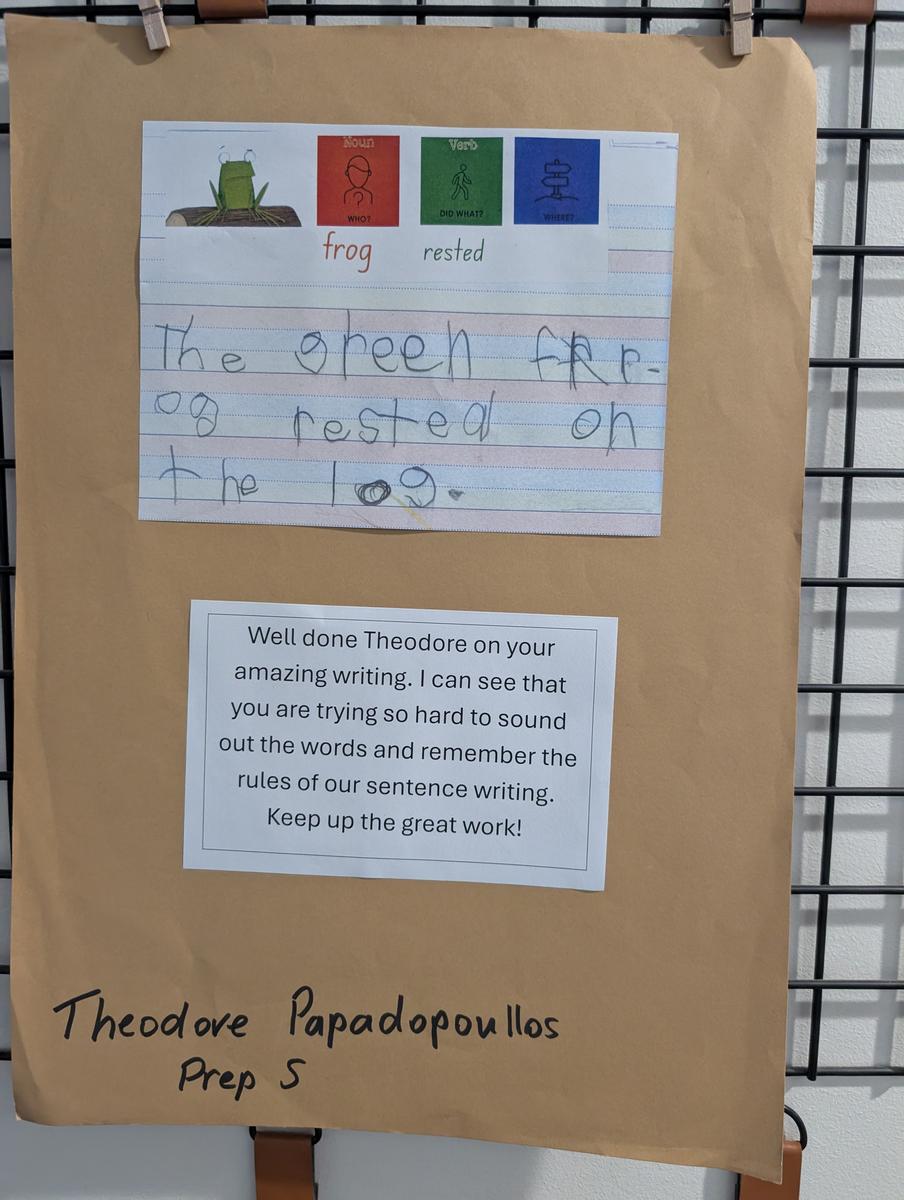 Noun Verb
WHO? DID WHAT? WHERE?
frog rested
The green fRr-
og rested on
the log.
Well done Theodore on your
amazing writing. I can see that
you are trying so hard to sound
out the words and remember the
rules of our sentence writing.
Keep up the great work!
Theodore Papadopoullos
Prep S